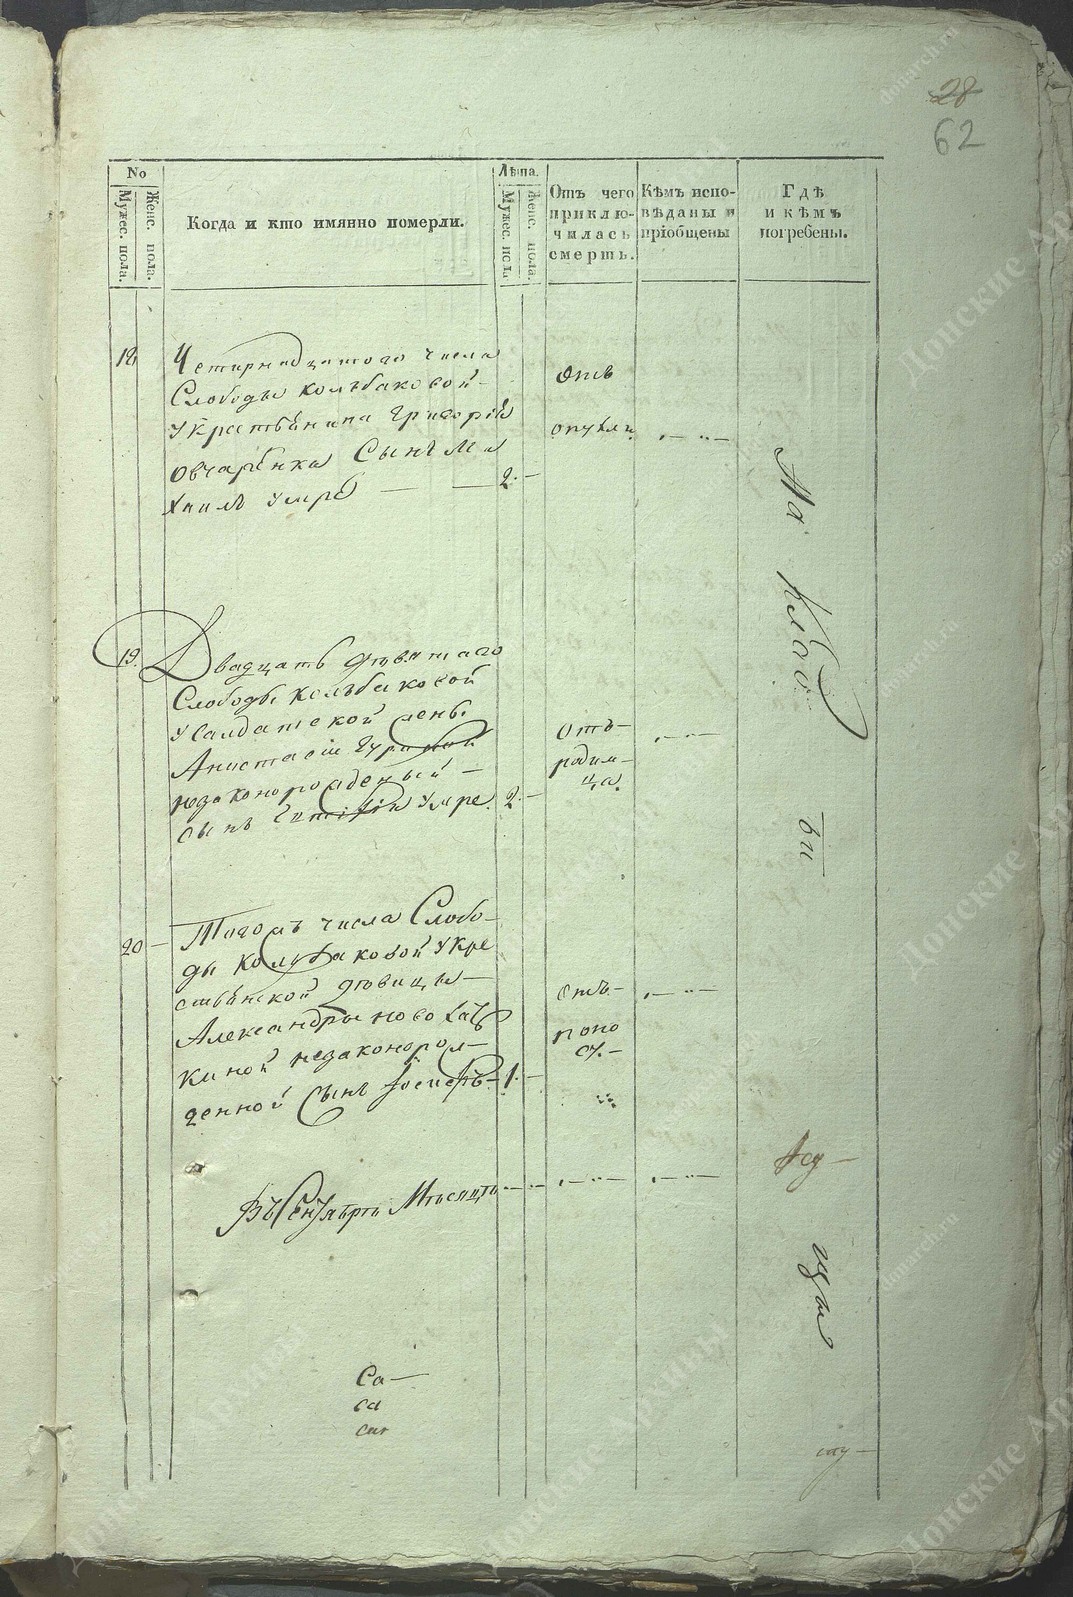 28
62
No
Мужес. пола.
Женс. пола.
Когда и кто имянно померли.
Лѣта.
Мужес. пола.
Женс. пола.
Отъ чего
приклю-
чилась
смерть.
Кѣмъ испо-
вѣданы и
прiобщены
Гдѣ
и кѣмъ
погребены.
18
Четырнадцатого числа
Слободы Колъбаковой
у Крестьянина Григорiя
Овчаренка Сынъ Ми
хаилъ умре
2.
Отъ
опухли
19.
Двадцать девятаго
Слободы Колъбаковой
у Салдатской жены
Анистасiи
незаконорожденый
сынъ умре
2.
Отъ
родим-
ца.
20
Тогожъ числа Слобо-
ды Колубаковой у Кре
стьянской девицы
Александры
киной незаконорож-
денной Сынъ
1.
Отъ
поно
су.
На Клад
би
Въ Сентябрѣ Мѣсяцѣ
щи
Са
са